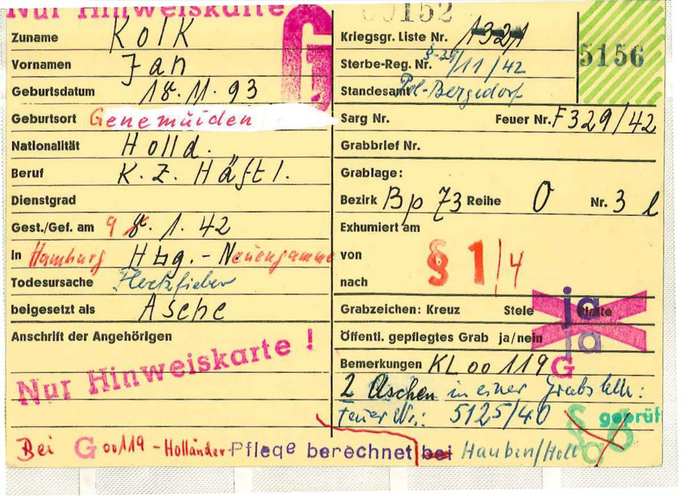 Nur Hinweiskarte
G
00152
5156
Zuname Kolk
Vornamen Jan
Geburtsdatum 18.11.93
Geburtsort Genemuiden
Nationalität Holld.
Beruf K.Z. Häftl.
Dienstgrad
Gest./Gef. am 9 8.1.42
in Hamburg Hbg.-Neuengamme
Todesursache
beigesetzt als Asche
Anschrift der Angehörigen
Nur Hinweiskarte !
Kriegsgr. Liste Nr. 1321
Sterbe-Reg. Nr. /11/42
Standesamt Bergedorf
Sarg Nr. Feuer Nr. F329/42
Grabbrief Nr.
Grablage:
Bezirk Bp 73 Reihe O Nr. 3 l
Exhumiert am
von
nach
§ 1/4
Grabzeichen: Kreuz Stele Platte
ja
Öffentl. gepflegtes Grab ja/nein
ja
Bemerkungen KL 00 119 G
2 Aschen in einer Grabstelle:
Feuer Nr.: 5125/40
geprüft
Bei G 00119 - Holländer Pflege berechnet bei Hauben/Holl